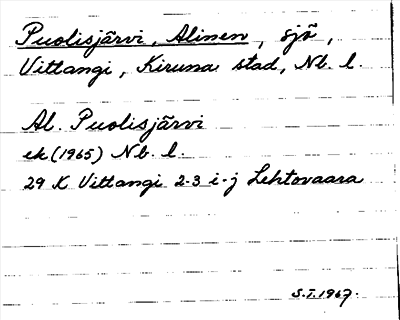 Puolisjärvi, Alinen, sjö,
Vittangi, Kiruna stad, Nb. l.
Al. Puolisjärvi
ek (1965) Nb. l.
29 K Vittangi 2-3 i-j Lehtovaara
S.I. 1967.